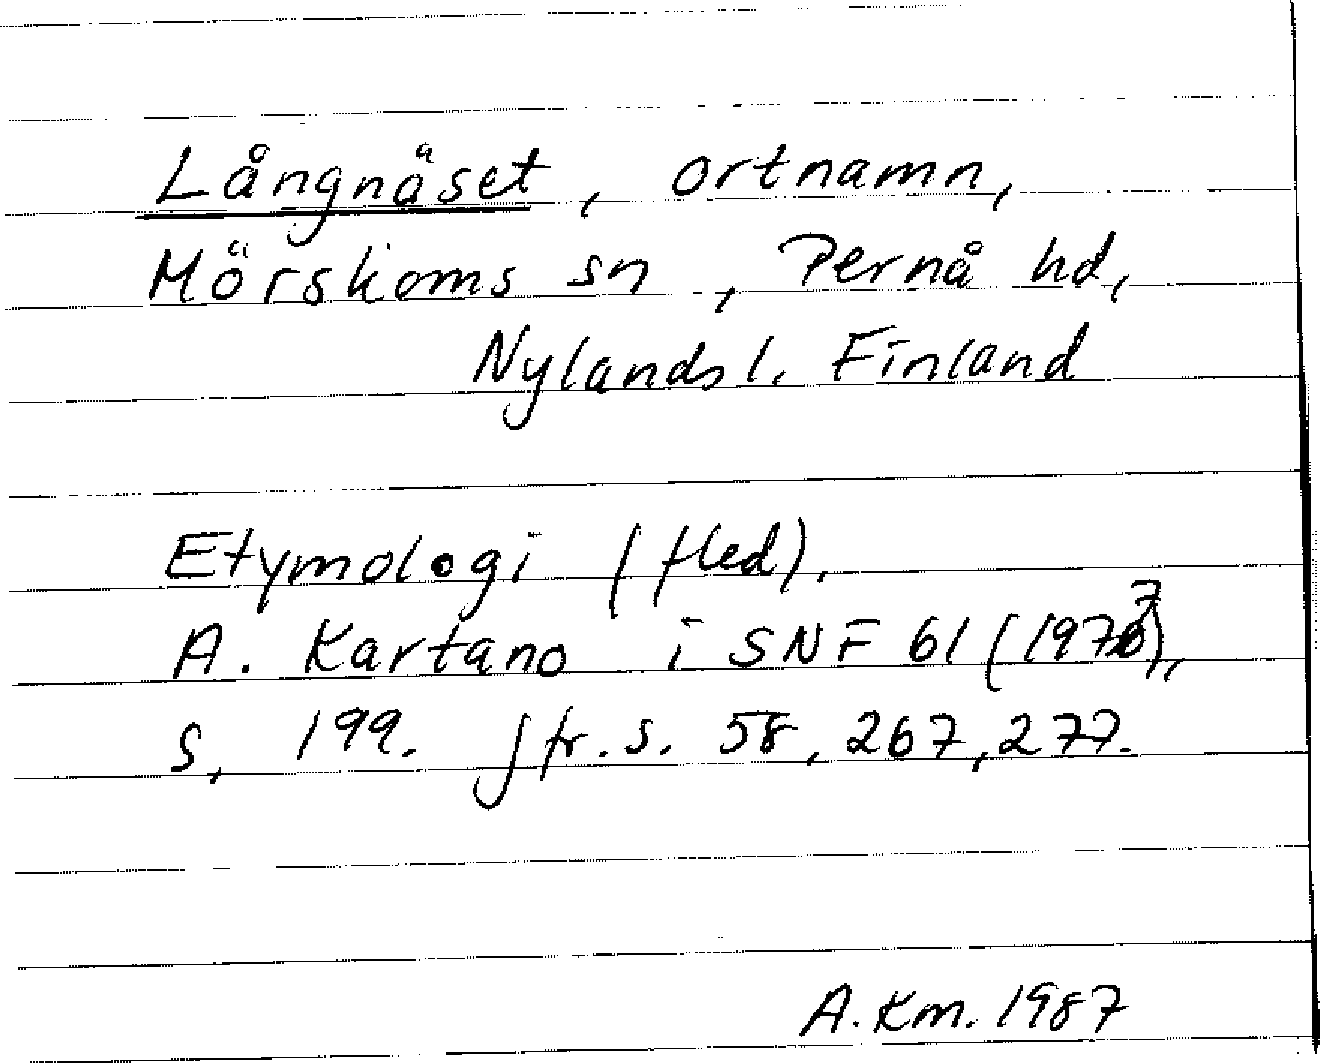 Långnäset, ortnamn,
Mörskoms sn, Pernå hd,
Nylands l. Finland
Etymologi (fled).
A. Kartano i SNF 61 (1973),
s, 199. Jfr. s. 58, 267, 277.
A. Km. 1987